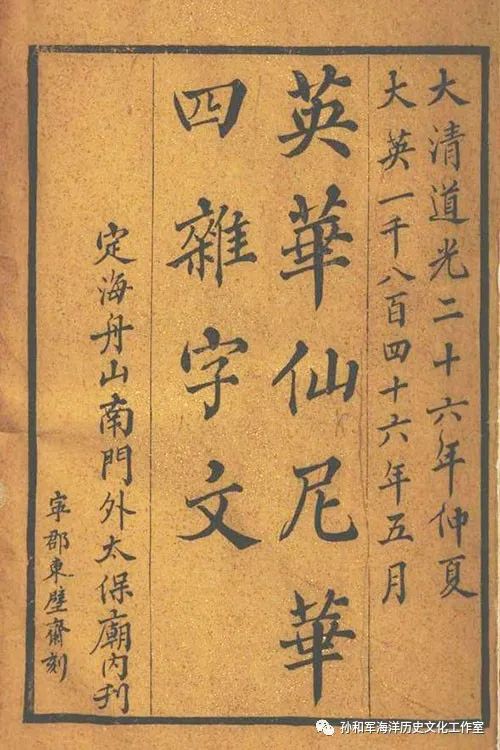 大清道光二十六年仲夏
大英一千八百四十六年五月
英華仙尼華
四雜字文
定海舟山南門外太保廟內刊
寧郡東壁齋刻
孙和军海洋历史文化工作室